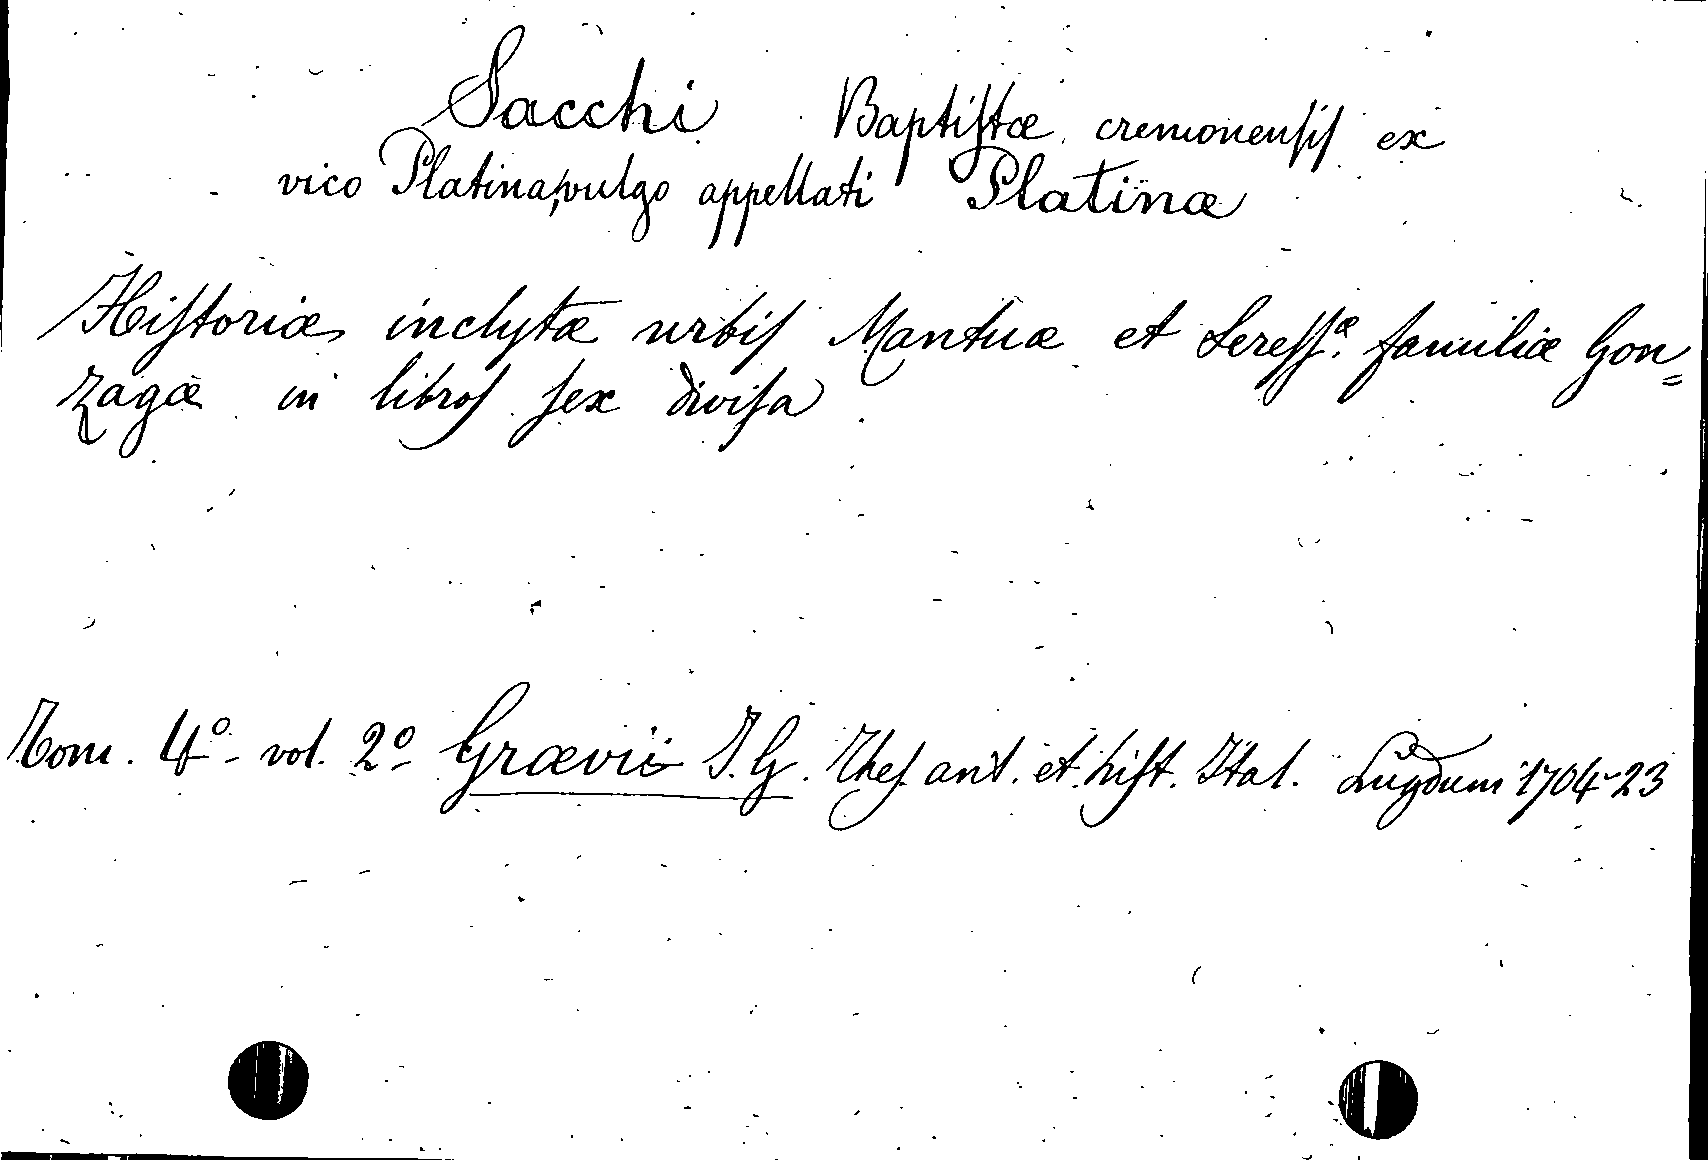 Sacchi Baptiſtæ cremonenſiſ ex
vico Platina, vulgo appellati Platinæ
Hiſtoriæ inclytæ urbiſ Mantuæ et Sereſſ.æ familiæ Gon=
zagæ in libroſ ſex diviſa
Tom. 4º- vol. 2º Grævii J.G. Theſ. ant. et hiſt. Ital. Lugduni 1704-23